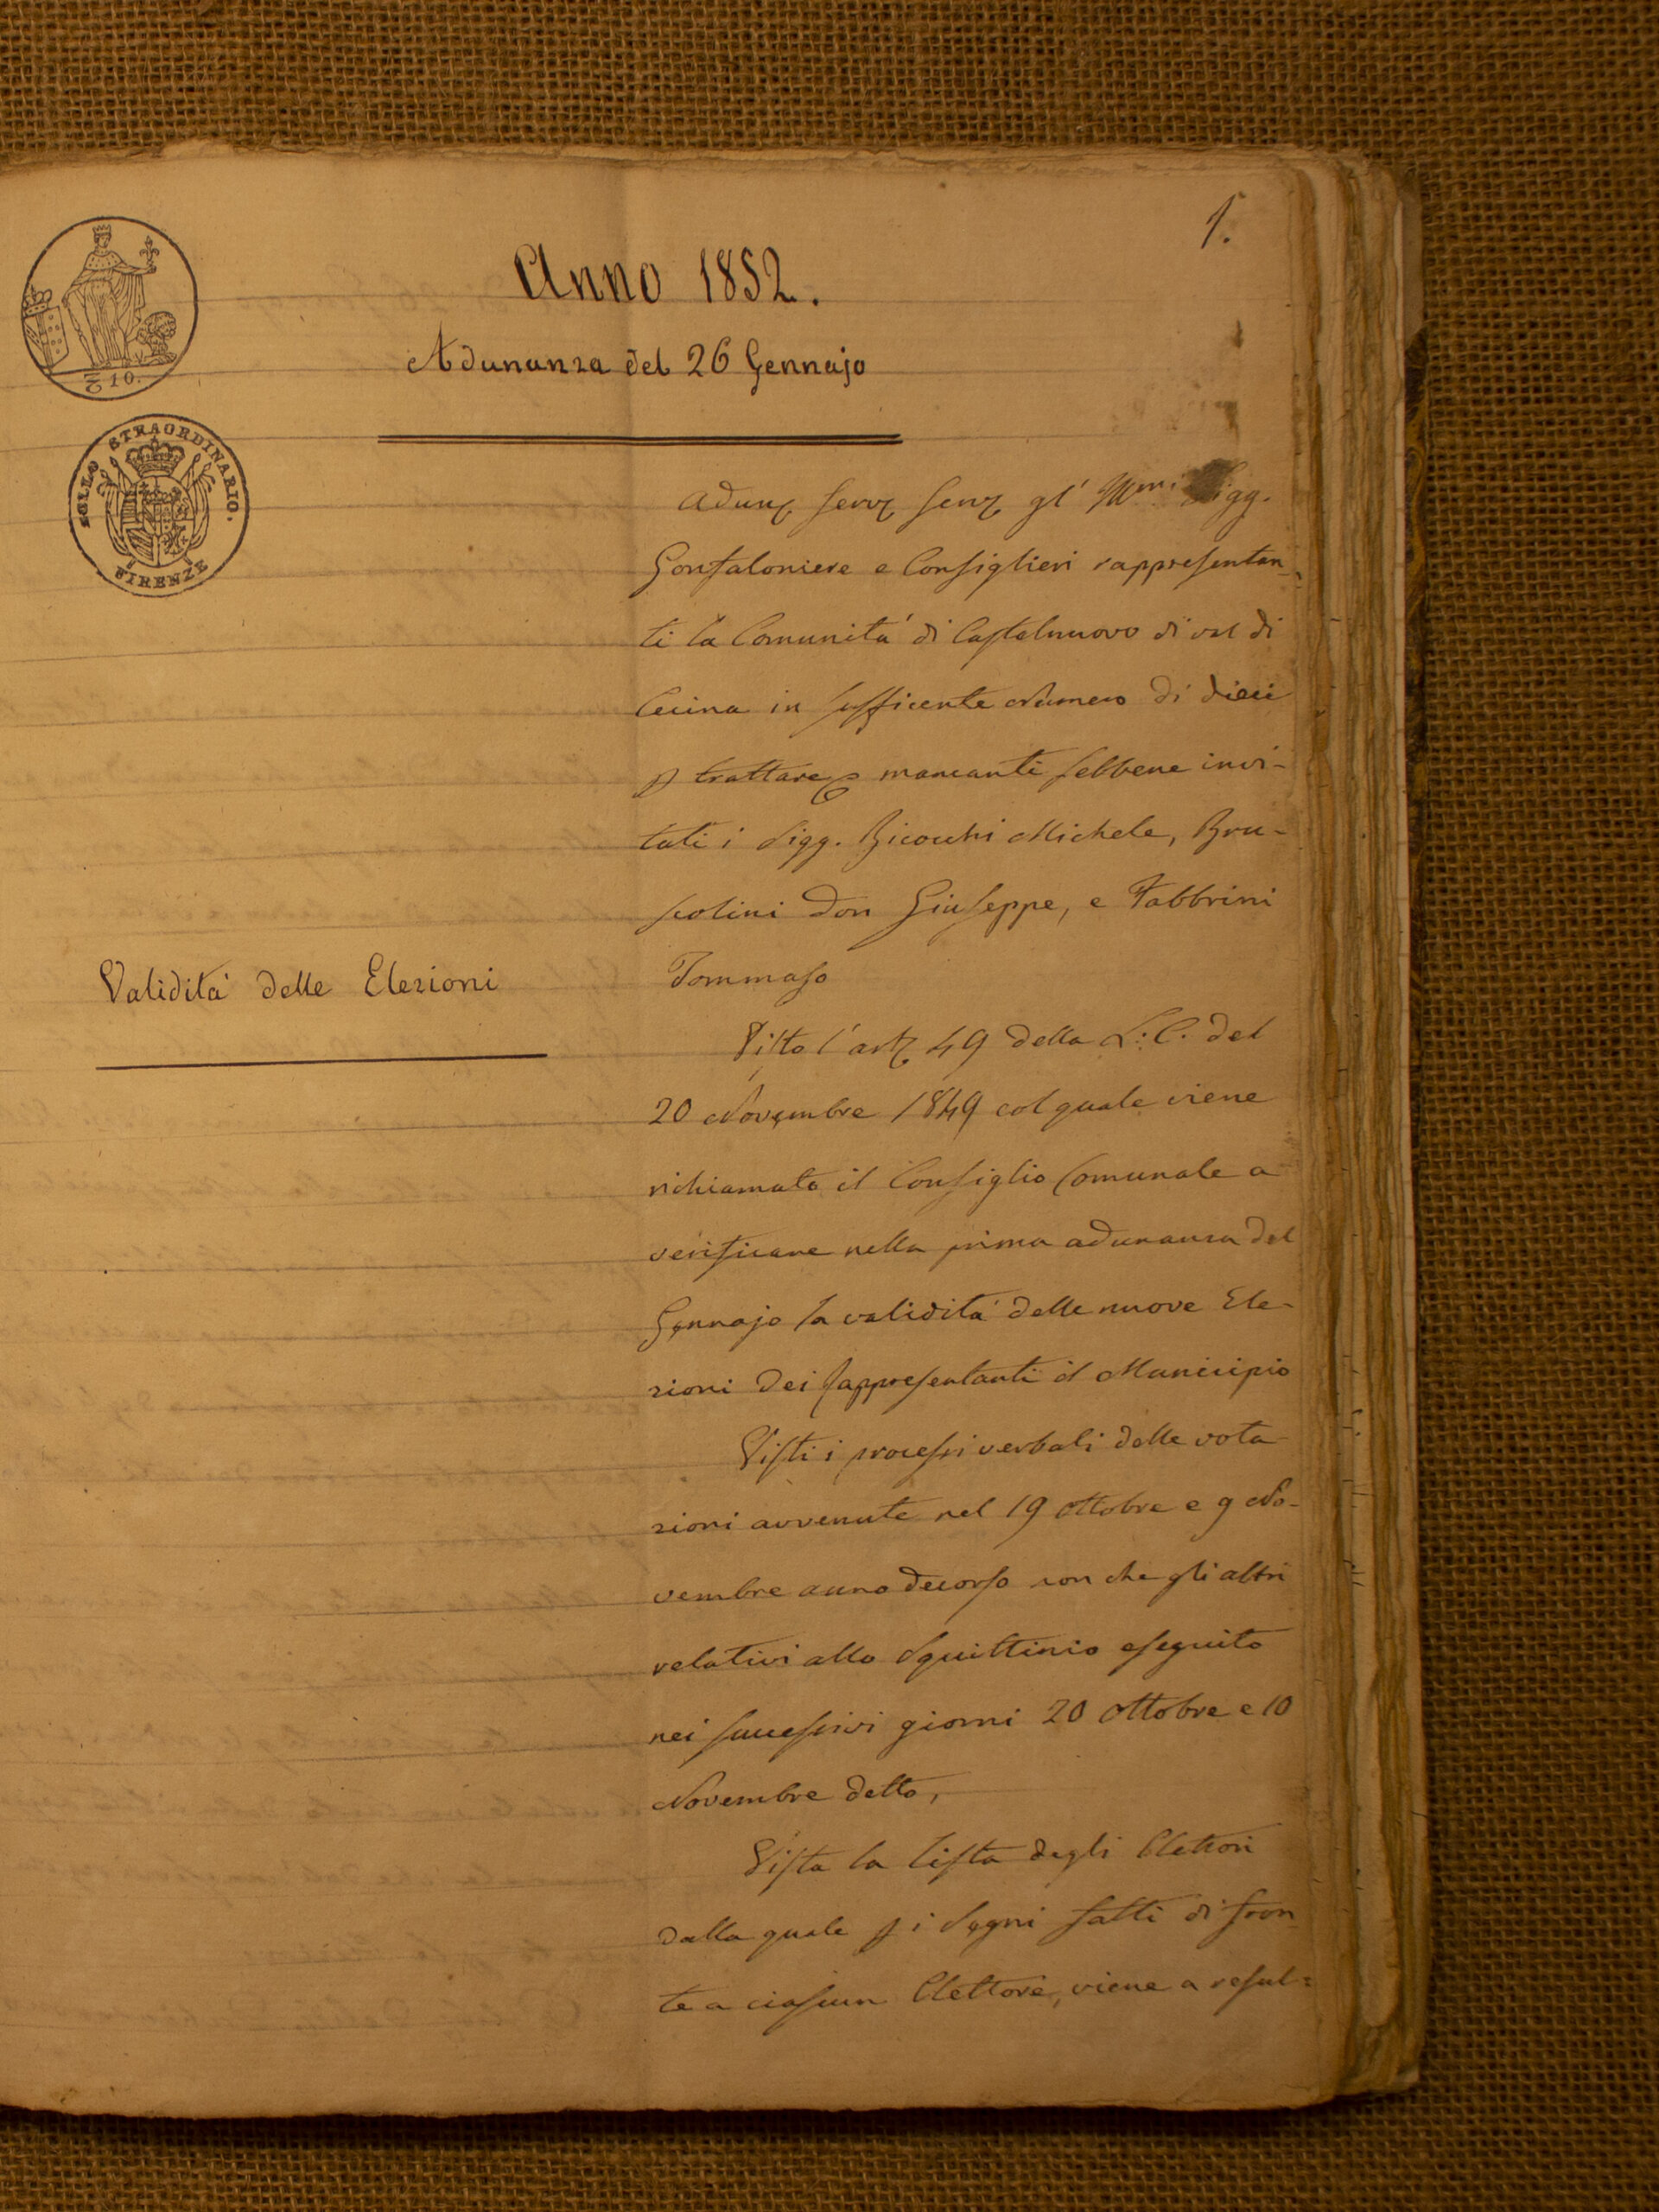 1.
Anno 1852.
Adunanza del 26 Gennajo
₤ 10.
BOLLO STRAORDINARIO.
FIRENZE
Adun serv serv gl' Illmi Sigg.
Gonfaloniere e Consiglieri rappresentan-
ti la Comunità di Castelnuovo di val di
Cecina in sufficente Numero di dieci
p trattare mancanti sebbene invi-
tati i Sigg. Bicocchi Michele, Bru-
scolini Don Giuseppe, e Fabbrini
Tommaso
Validità delle Elezioni
Visto l'art 49 della L: C: del
20 Novembre 1849 col quale viene
richiamato il Consiglio Comunale a
verificare nella prima adunanza del
Gennajo la validità delle nuove Ele-
zioni dei rappresentanti il Municipio
Visti i processi verbali delle vota
zioni avvenute nel 19 Ottobre e 9 No-
vembre anno decorso non che gli altri
relativi allo Squittinio eseguito
nei successivi giorni 20 Ottobre e 10
Novembre detto,
Vista la lista degli Elettori
dalla quale p i Segni fatti di fron
te a ciascun Elettore, viene a resul=